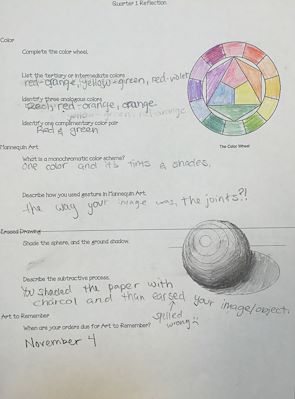 Quarter 1 Reflection
Color
Complete the color wheel.
List the tertiary or intermediate colors
red-orange, yellow-green, red-violet
Identify three analogous colors
Red, red-orange, orange
Identify one complimentary color pair
Red & green
The Color Wheel
Mannequin Art
What is a monochromatic color scheme?
one color and its tints & shades.
Describe how you used gesture in Mannequin Art.
the way your image was, the joints?!
Erased Drawing
Shade the sphere, and the ground shadow.
Describe the subtractive process.
You shaded the paper with
charcol and than earsed your image/object.
spelled
wrong
Art to Remember
When are your orders due for Art to Remember?
November 4